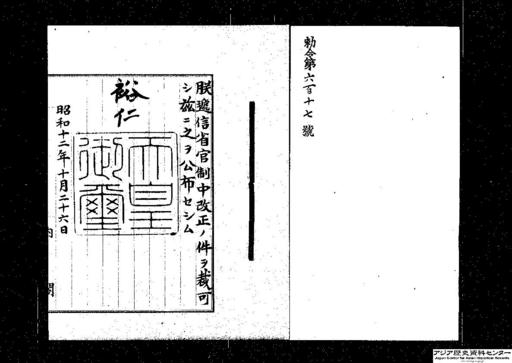 勅令第六百十七號
朕遞信省官制中改正ノ件ヲ裁可
シ茲ニ之ヲ公布セシム
裕仁
天皇御璽
昭和十二年十月二十六日
内閣
アジア歴史資料センター
Japan Center for Asian Historical Records